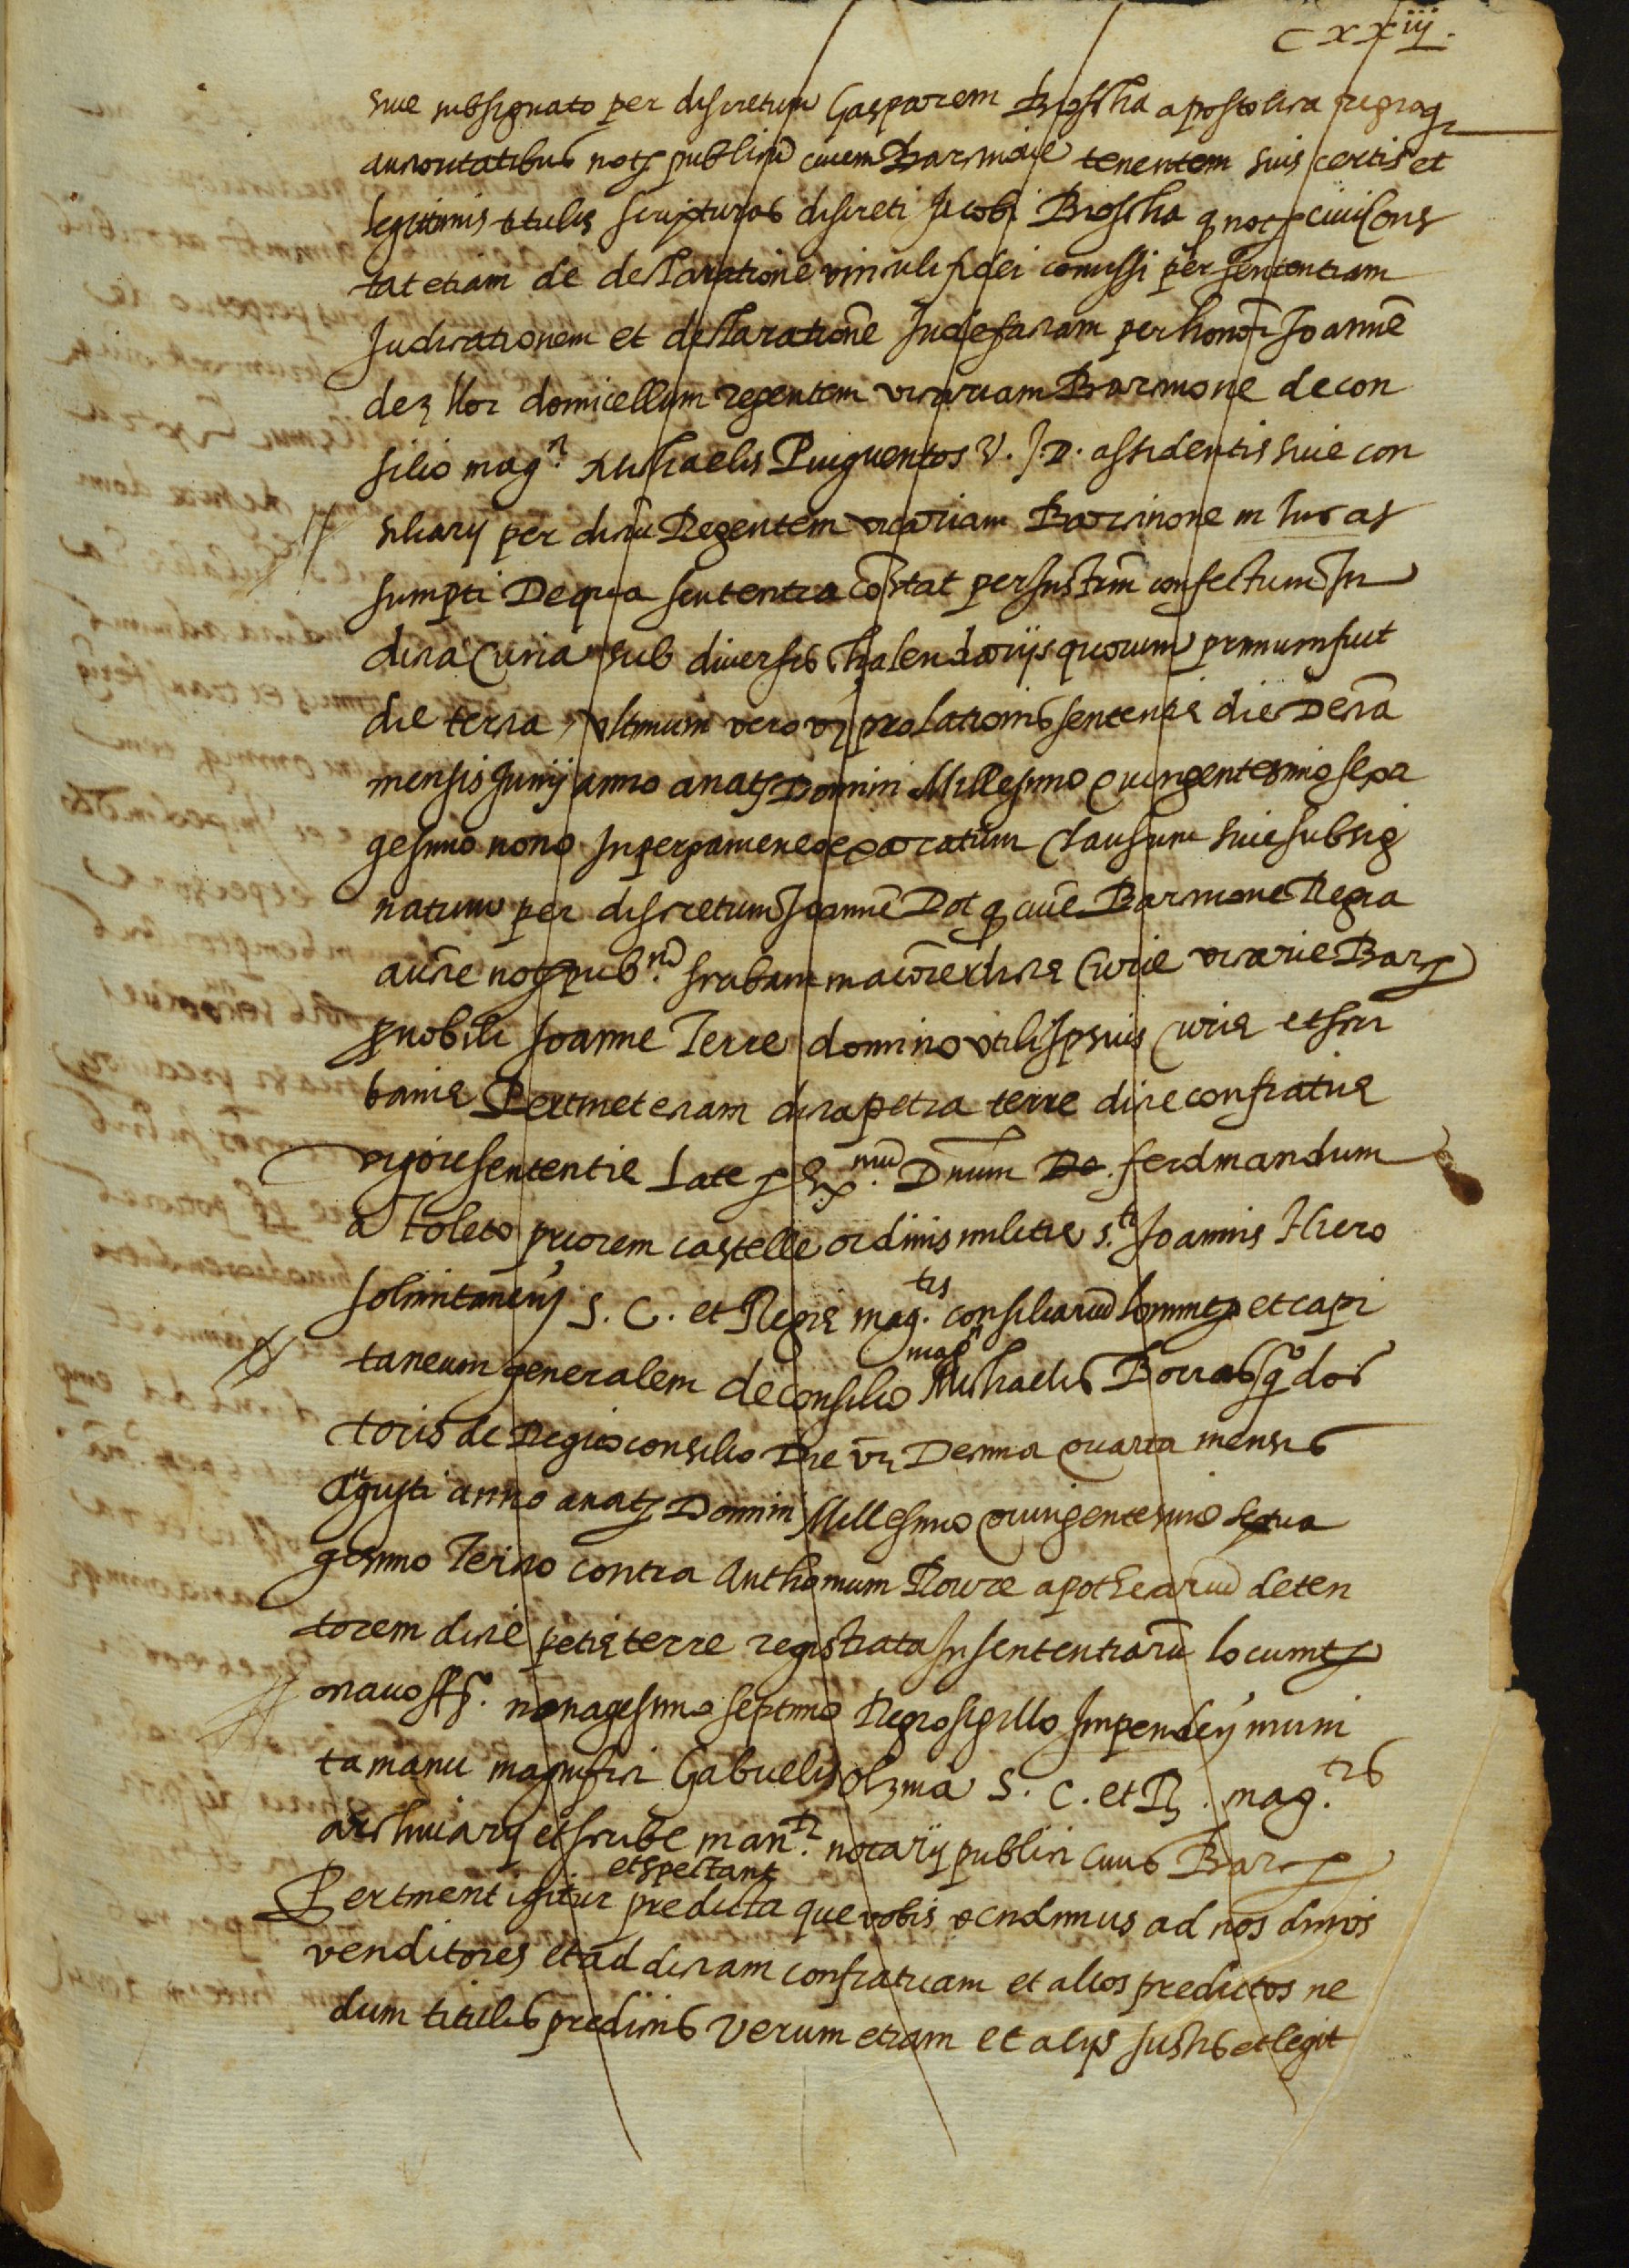 CXXiij.
sive subsignato per discretum Gasparem Brossha apostolica regiaq
auctoritatibus notm publicū civem Barcinoñe tenentem suis certis et
legitimis titulis scripturas discreti Jacobi Brossha q notm civi Cons
tat etiam de declaratione vinculi fidei comissi per sententiam
Judicationem et declarationē Inde factam per honor Joannē
dez llor domicellum regentem vicariam Barcinone de con
silio magci Michaelis Puiguentos V. J. D. assidentis sive con
siliarij per dictū Regentem vicariam Barcinone in hus as
sumpti De qua sententia cōstat per Instrm confectum In
dicta Curia sub diversis khalendarijs quorum primum fuit
die tertia, Ultimum vero vz prolationis sententie die Decīa
mensis Junij anno a natte Domini Millesimo Quingentesimo sexa
gesimo nono In pergameneo exaratum Clausum sive subsig
natum per discretum Joannē Dot q civē Barcinone Regia
aucte notm pubcū scribam maiorē dicte Curie vicarie Barne
p nobili Joanne Terre domino utili Ipsius Curie et scri
banie Pertinet etiam dicta petia terre dicte confratrie
vigore sententie Late p Exmū Dnum De. ferdinandum
a Toleto priorem castelle ordinis militie s.ti Joannis Hiero
solimitaneij S. C. et Regie mag.tis consiliariū locumte et capi
taneum generalem de consilio magci Michaelis Borras q° doc
toris de Regio consilio Die vz Decima Quarta mensis
Augusti anno a natte Domini Millesimo Quingentesimo septua
gesimo Tertio contra Anthonium Roure apothecariū deten
torem dicte petie terre registrata In sententiarū locumte
octavo ff°. nonagesimo septimo Regio sigillo Impendeij muni
ta manu magnifici Gabrielis Olzina S. C. et R. mag.tis
archiviarij et scribe manti. notarij publici civis Barne
Pertinent igitur et spectant predicta que vobis vendimus ad nos dictos
venditores et ad dictam confratriam et alios predictos ne
dum titulis predictis Verum etiam et alijs Justis et legit